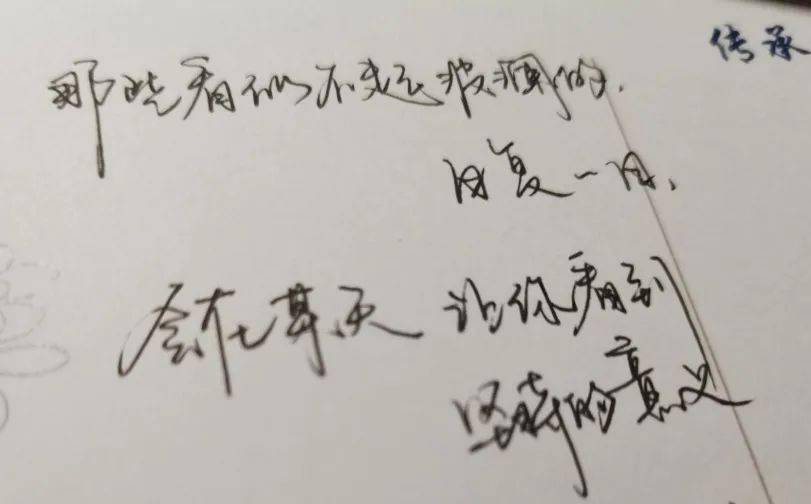 传承
那些看似不起波澜的，
日复一日，
会在某天 让你看到
坚持的意义